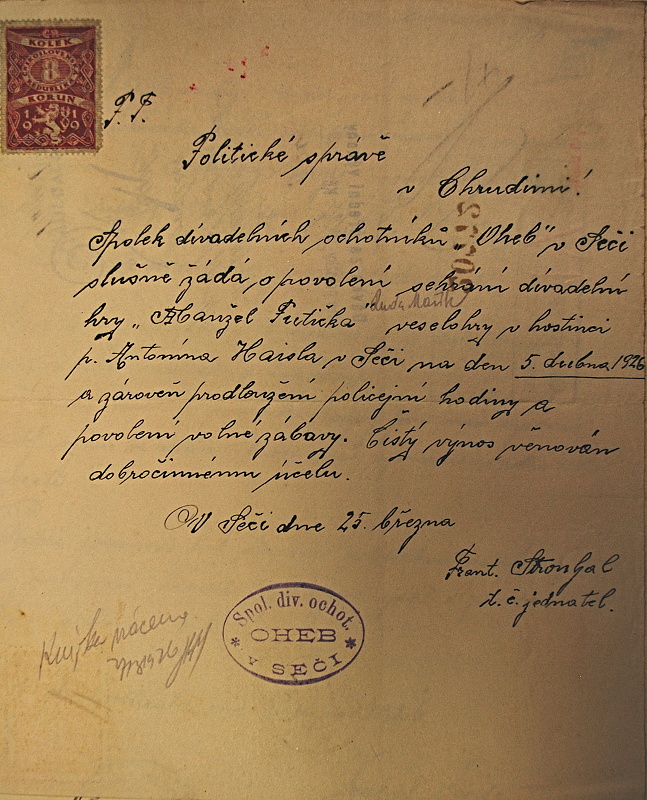 KOLEK
8
KORUN
1919
P. T.
Politické správě
v Chrudimi!
Spolek divadelních ochotníků „Oheb" v Seči
slušně žádá o povolení sehrání divadelní
hry „Manžel Putička" veselohry v hostinci
p. Antonína Haisla v Seči na den 5. dubna 1926
a zároveň prodloužení policejní hodiny a
povolení volné zábavy. Čistý výnos věnován
dobročinnému účelu.
V Seči dne 25. března
Frant. Strouhal
t. č. jednatel.
Spol. div. ochot.
* OHEB *
v SEČI